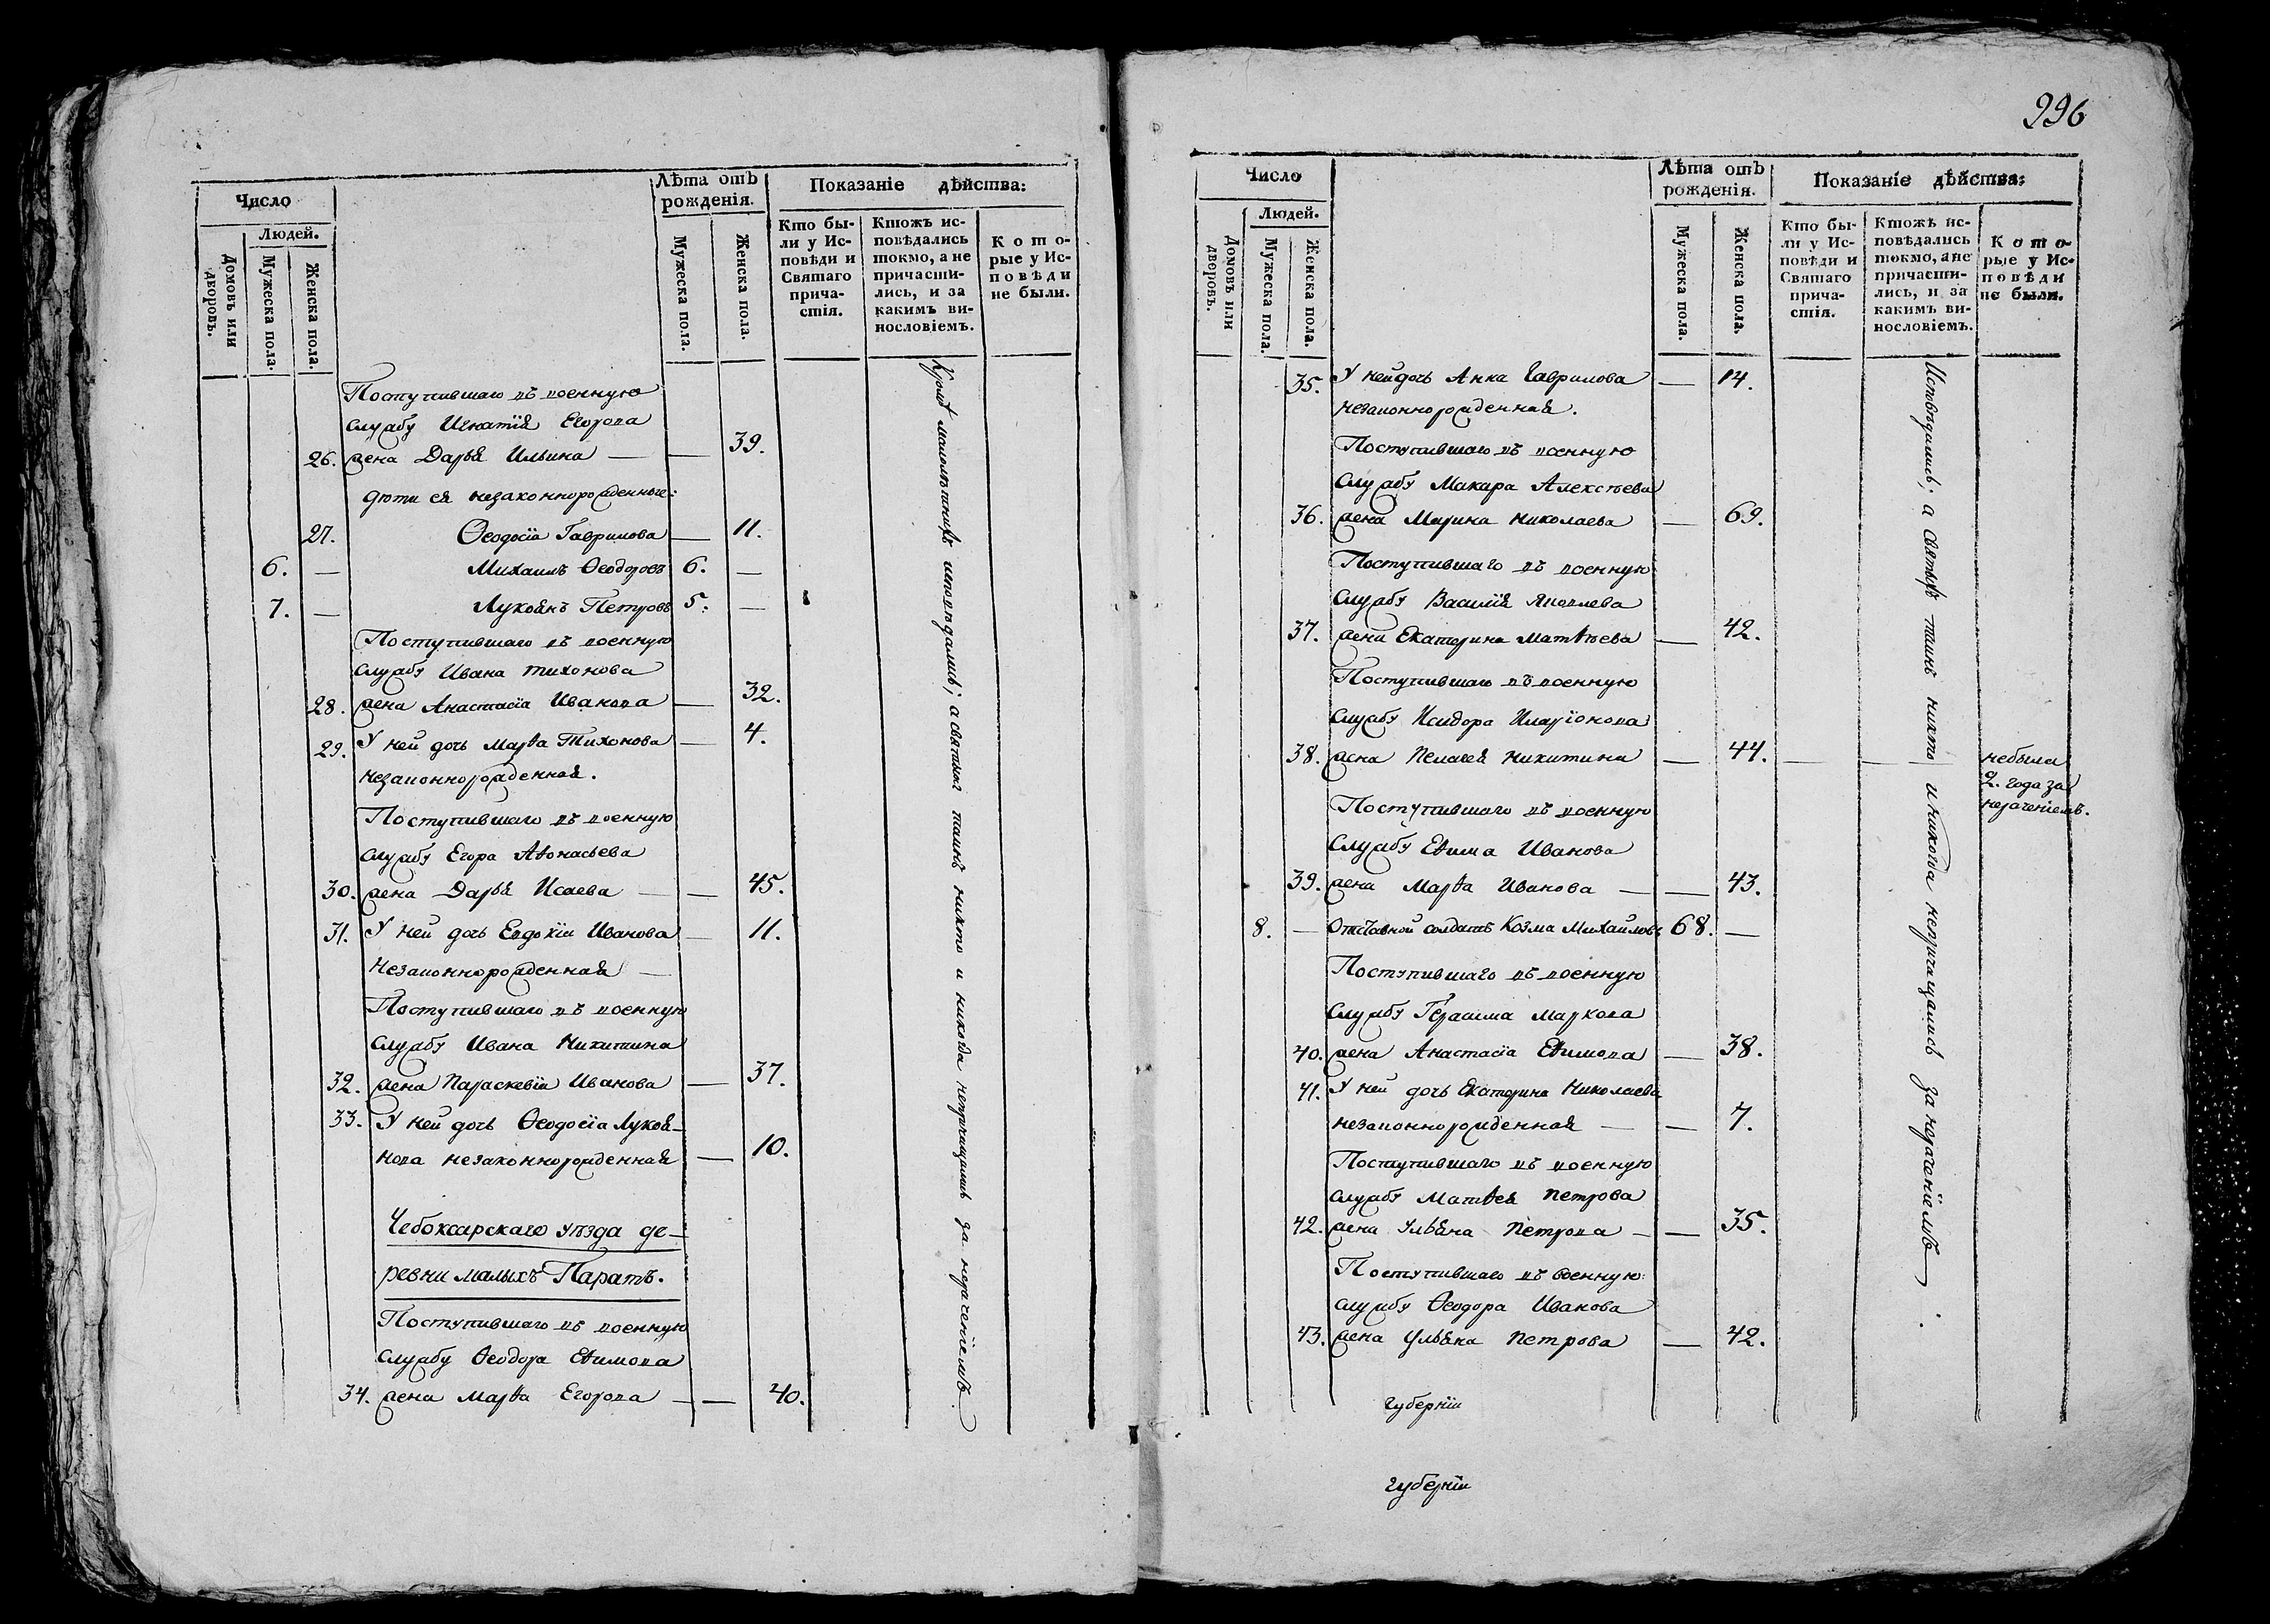 Число
Людей.
Домовъ или дворовъ.
Мужеска пола.
Женска пола.
Лѣта отъ рожденія.
Мужеска пола.
Женска пола.
Показаніе дѣйства:
Кто бы-
ли у Ис-
повѣди и
Святаго
прича-
стія.
Ктожъ ис-
повѣдались
токмо, а не
причасти-
лись, и за
какимъ ви-
нословіемъ.
Кото-
рые у Ис-
повѣди
не были.
Поступившаго въ военную
службу Игнатія Егорова
26. жена Дарья Ильина — — 39.
дѣти ея незаконнорожденные:
27. Ѳеодосія Гаврилова — 11.
6. — Михаилъ Ѳеодоровъ 6. —
7. — Лукоянъ Петровъ 5. —
Поступившаго въ военную
службу Ивана Тихонова
28. жена Анастасія Иванова — 32.
29. У ней дочь Марѳа Тихонова — 4.
незаконнорожденная.
Поступившаго въ военную
службу Егора Аѳонасьева
30. жена Дарья Исаева — — 45.
31. У ней дочь Евдокія Иванова — 11.
незаконнорожденная —
Поступившаго въ военную
службу Ивана Никитина
32. жена Параскевія Иванова — 37.
33. У ней дочь Ѳеодосія Лукоя-
нова незаконнорожденная — 10.
Чебоксарскаго уѣзда де-
ревни малыхъ Паратъ.
Поступившаго въ военную
службу Ѳеодора Еѳимова
34. жена Марѳа Егорова — — 40.
Кромѣ малолѣтнихъ исповѣдались; а святыхъ таинъ никто и никогда непричащались за нераченіемъ.
996
Число
Людей.
Домовъ или дворовъ.
Мужеска пола.
Женска пола.
Лѣта отъ рожденія.
Мужеска пола.
Женска пола.
Показаніе дѣйства:
Кто бы-
ли у Ис-
повѣди и
Святаго
прича-
стія.
Ктожъ ис-
повѣдались
токмо, а не
причасти-
лись, и за
какимъ ви-
нословіемъ.
Кото-
рые у Ис-
повѣди
не были.
35. У ней дочь Анна Гаврилова — 14.
незаконнорожденная.
Поступившаго въ военную
службу Макара Алексѣева
36. жена Марина Николаева — 69.
Поступившаго въ военную
службу Василія Яковлева
37. жена Екатерина Матѳѣева — 42.
Поступившаго въ военную
службу Исидора Иларіонова
38. жена Пелагея Никитина — 44. — — небыла
2. года за
нераченіемъ.
Поступившаго въ военную
службу Еѳима Иванова
39. жена Марѳа Иванова — — 43.
8. — Отставной солдатъ Козма Михайловъ 68. —
Поступившаго въ военную
службу Герасима Маркова
40. жена Анастасія Еѳимова — 38.
41. У ней дочь Екатерина Николаева
незаконнорожденная — — 7.
Поступившаго въ военную
службу Матѳея Петрова
42. жена Ульяна Петрова — — 35.
Поступившаго въ военную
службу Ѳеодора Иванова
43. жена Ульяна Петрова — 42.
Исповѣдались; а святыхъ таинъ никто и никогда непричащались за нераченіемъ.
губерніи
губерніи